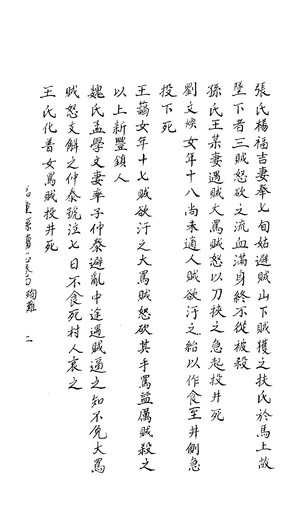 張氏楊福吉妻奉七旬姑避賊山下賊獲之扶氏於馬上故
墜下者三賊怒砍之流血滿身終不從被殺
孫氏王某妻遇賊大罵賊怒以刀挾之急起投井死
劉文煥女年十八尚未適人賊欲汙之紿以作食至井側急
投下死
王藹女年十七賊欲汙之大罵賊怒砍其手罵益厲賊殺之
以上新豐鎮人
魏氏孟學文妻率子仲泰避亂中途遇賊逼之知不免大罵
賊怒支解之仲泰號泣七日不食死村人哀之
王氏化普女罵賊投井死
殉難 二